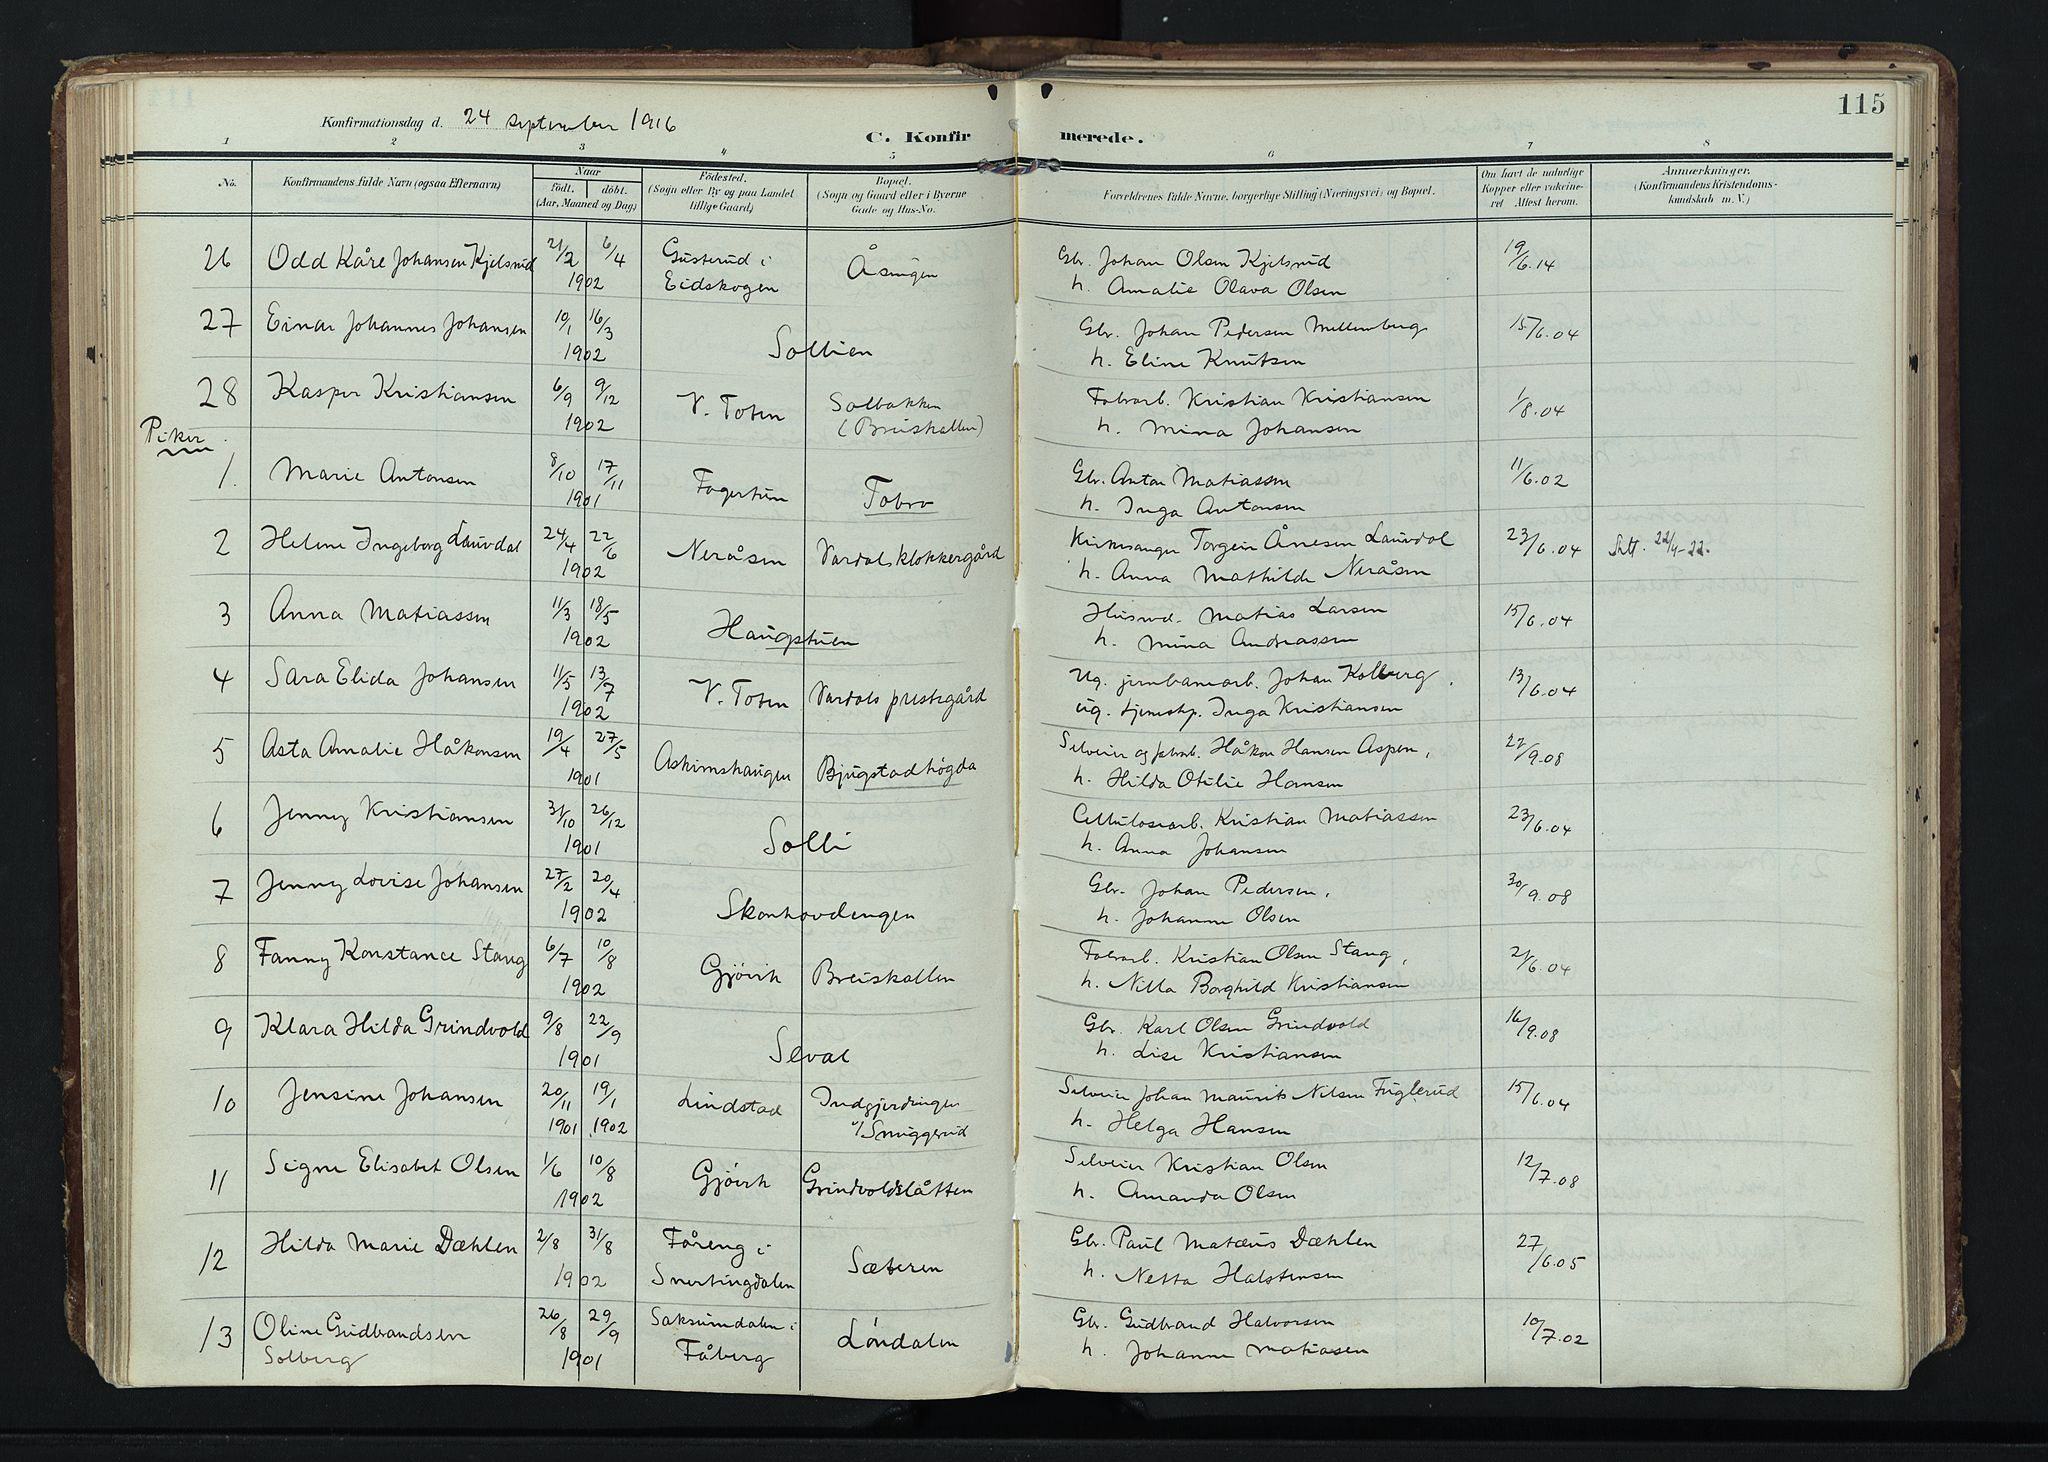 115
Konfirmationsdag d. 24 september 1916
C. Konfirmerede.
1 2 3 4 5 6 7 8
No.
Konfirmandens fulde Navn (ogsaa Efternavn)
Naar
födt. döbt.
(Aar, Maaned og Dag)
Födested.
(Sogn eller By og paa Landet
tillige Gaard)
Bopæl.
(Sogn og Gaard eller i Byerne
Gade og Hus-No.
Forældrenes fulde Navne, borgerlige Stilling (Næringsvei) og Bopæl.
Om havt de naturlige
Kopper eller vakcineret
Attest herom.
Anmærkninger.
(Konfirmandens Kristendomskundskab
m. V.)
26 Odd Kåre Johansen Kjelsrud 21/2 6/4 1902 Gusterud i Eidskogen Åsengen Gbr. Johan Olsen Kjelsrud 19/6.14
h. Amalie Olava Olsen
27 Einar Johannes Johansen 10/1 16/3 1902 Sollien Gbr. Johan Pedersen Mellemberg 15/6.04
h. Eline Knutsen
28 Kasper Kristiansen 6/9 9/12 1902 V. Toten Solbakken (Breiskallen) Fabrarb. Kristian Kristiansen 1/8.04
h. Mina Johansen
Piker
1. Marie Antonsen 8/10 17/11 1901 Fagertun Tobro Gbr. Anton Matiassen 11/6.02
h. Inga Antonsen
2 Helene Ingeborg Lauvdal 24/4 22/6 1902 Neråsen Vardals klokkergård Kirkesanger Torgeir Ånesen Lauvdal 23/6.04 Att. 22/4-22.
h. Anna Mathilde Neråsen
3 Anna Matiassen 11/3 18/5 1902 Haugstuen Husmd. Matias Larsen 15/6.04
h. Mina Andreassen
4 Sara Elida Johansen 11/5 13/7 1902 V. Toten Vardals prestegård Ug. jernbanearb. Johan Kolberg, 13/6.04
ug. tjenestp. Inga Kristiansen
5 Asta Amalie Håkonsen 19/4 27/5 1901 Askimshaugen Bjugstadhögda Selveier og fabrarb. Håkon Hansen Aspen, 22/9.08
h. Hilda Otilie Hansen
6 Jenny Kristiansen 31/10 26/12 1901 Solli Cellulosearb. Kristian Matiassen 23/6.04
h. Anna Johansen
7 Jenny Lovise Johansen 27/2 20/4 1902 Skonhovdengen Gbr. Johan Pedersen, 30/9.08
h. Johanne Olsen
8 Fanny Konstance Stang 6/7 10/8 1902 Gjövik Breiskallen Fabrarb. Kristian Olsen Stang, 2/6.04
h. Nilla Borghild Kristiansen
9 Klara Hilda Grindvold 9/8 22/9 1901 Seval Gbr. Karl Olsen Grindvold 16/9.08
h. Lise Kristiansen
10 Jensine Johansen 20/11 1901 19/1 1902 Lindstad Indgjerdingen u/Smuggerud Selveier Johan Maurits Nilsen Fuglerud 15/6.04
h. Helga Hansen
11 Signe Elisabet Olsen 1/6 10/8 1902 Gjövik Grindvoldslåtten Selveier Kristian Olsen 12/7.08
h. Amanda Olsen
12 Hilda Marie Dæhlen 2/8 31/8 1902 Fåreng i Snertingdalen Sæteren Gbr. Paul Matæus Dæhlen 27/6.05
h. Netta Halstensen
13 Oline Gudbrandsen Solberg 26/8 29/9 1901 Saksumdalen i Fåberg Löndalen Gbr. Gudbrand Halvorsen 10/7.02
h. Johanne Matiasen